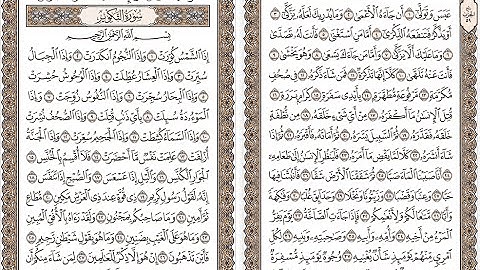 عَبَسَ وَتَوَلَّىٰٓ ١ أَن جَآءَهُ ٱلۡأَعۡمَىٰ ٢ وَمَا يُدۡرِيكَ لَعَلَّهُۥ يَزَّكَّىٰٓ ٣
أَوۡ يَذَّكَّرُ فَتَنفَعَهُ ٱلذِّكۡرَىٰٓ ٤ أَمَّا مَنِ ٱسۡتَغۡنَىٰ ٥ فَأَنتَ لَهُۥ تَصَدَّىٰ ٦
وَمَا عَلَيۡكَ أَلَّا يَزَّكَّىٰ ٧ وَأَمَّا مَن جَآءَكَ يَسۡعَىٰ ٨ وَهُوَ يَخۡشَىٰ ٩
فَأَنتَ عَنۡهُ تَلَهَّىٰ ١٠ كَلَّآ إِنَّهَا تَذۡكِرَةٞ ١١ فَمَن شَآءَ ذَكَرَهُۥ ١٢ فِي صُحُفٖ
مُّكَرَّمَةٖ ١٣ مَّرۡفُوعَةٖ مُّطَهَّرَةِۭ ١٤ بِأَيۡدِي سَفَرَةٖ ١٥ كِرَامِۭ بَرَرَةٖ ١٦
قُتِلَ ٱلۡإِنسَٰنُ مَآ أَكۡفَرَهُۥ ١٧ مِنۡ أَيِّ شَيۡءٍ خَلَقَهُۥ ١٨ مِن نُّطۡفَةٍ
خَلَقَهُۥ فَقَدَّرَهُۥ ١٩ ثُمَّ ٱلسَّبِيلَ يَسَّرَهُۥ ٢٠ ثُمَّ أَمَاتَهُۥ فَأَقۡبَرَهُۥ ٢١ ثُمَّ إِذَا
شَآءَ أَنشَرَهُۥ ٢٢ كَلَّا لَمَّا يَقۡضِ مَآ أَمَرَهُۥ ٢٣ فَلۡيَنظُرِ ٱلۡإِنسَٰنُ إِلَىٰ طَعَامِهِۦٓ
٢٤ أَنَّا صَبَبۡنَا ٱلۡمَآءَ صَبّٗا ٢٥ ثُمَّ شَقَقۡنَا ٱلۡأَرۡضَ شَقّٗا ٢٦ فَأَنۢبَتۡنَا فِيهَا
حَبّٗا ٢٧ وَعِنَبٗا وَقَضۡبٗا ٢٨ وَزَيۡتُونٗا وَنَخۡلٗا ٢٩ وَحَدَآئِقَ غُلۡبٗا ٣٠ وَفَٰكِهَةٗ
وَأَبّٗا ٣١ مَّتَٰعٗا لَّكُمۡ وَلِأَنۡعَٰمِكُمۡ ٣٢ فَإِذَا جَآءَتِ ٱلصَّآخَّةُ ٣٣ يَوۡمَ يَفِرُّ
ٱلۡمَرۡءُ مِنۡ أَخِيهِ ٣٤ وَأُمِّهِۦ وَأَبِيهِ ٣٥ وَصَٰحِبَتِهِۦ وَبَنِيهِ ٣٦ لِكُلِّ
ٱمۡرِيٕٖ مِّنۡهُمۡ يَوۡمَئِذٖ شَأۡنٞ يُغۡنِيهِ ٣٧ وُجُوهٞ يَوۡمَئِذٖ مُّسۡفِرَةٞ
سُورَةُ التَّكْوِيرِ
بِسۡمِ ٱللَّهِ ٱلرَّحۡمَٰنِ ٱلرَّحِيمِ
إِذَا ٱلشَّمۡسُ كُوِّرَتۡ ١ وَإِذَا ٱلنُّجُومُ ٱنكَدَرَتۡ ٢ وَإِذَا ٱلۡجِبَالُ
سُيِّرَتۡ ٣ وَإِذَا ٱلۡعِشَارُ عُطِّلَتۡ ٤ وَإِذَا ٱلۡوُحُوشُ حُشِرَتۡ
٥ وَإِذَا ٱلۡبِحَارُ سُجِّرَتۡ ٦ وَإِذَا ٱلنُّفُوسُ زُوِّجَتۡ ٧ وَإِذَا
ٱلۡمَوۡءُۥدَةُ سُئِلَتۡ ٨ بِأَيِّ ذَنۢبٖ قُتِلَتۡ ٩ وَإِذَا ٱلصُّحُفُ نُشِرَتۡ
١٠ وَإِذَا ٱلسَّمَآءُ كُشِطَتۡ ١١ وَإِذَا ٱلۡجَحِيمُ سُعِّرَتۡ ١٢ وَإِذَا ٱلۡجَنَّةُ
أُزۡلِفَتۡ ١٣ عَلِمَتۡ نَفۡسٞ مَّآ أَحۡضَرَتۡ ١٤ فَلَآ أُقۡسِمُ بِٱلۡخُنَّسِ ١٥
ٱلۡجَوَارِ ٱلۡكُنَّسِ ١٦ وَٱلَّيۡلِ إِذَا عَسۡعَسَ ١٧ وَٱلصُّبۡحِ إِذَا تَنَفَّسَ ١٨
إِنَّهُۥ لَقَوۡلُ رَسُولٖ كَرِيمٖ ١٩ ذِي قُوَّةٍ عِندَ ذِي ٱلۡعَرۡشِ مَكِينٖ ٢٠ مُّطَاعٖ
ثَمَّ أَمِينٖ ٢١ وَمَا صَاحِبُكُم بِمَجۡنُونٖ ٢٢ وَلَقَدۡ رَءَاهُ بِٱلۡأُفُقِ ٱلۡمُبِينِ
٢٣ وَمَا هُوَ عَلَى ٱلۡغَيۡبِ بِضَنِينٖ ٢٤ وَمَا هُوَ بِقَوۡلِ شَيۡطَٰنٖ رَّجِيمٖ ٢٥
فَأَيۡنَ تَذۡهَبُونَ ٢٦ إِنۡ هُوَ إِلَّا ذِكۡرٞ لِّلۡعَٰلَمِينَ ٢٧ لِمَن شَآءَ مِنكُمۡ